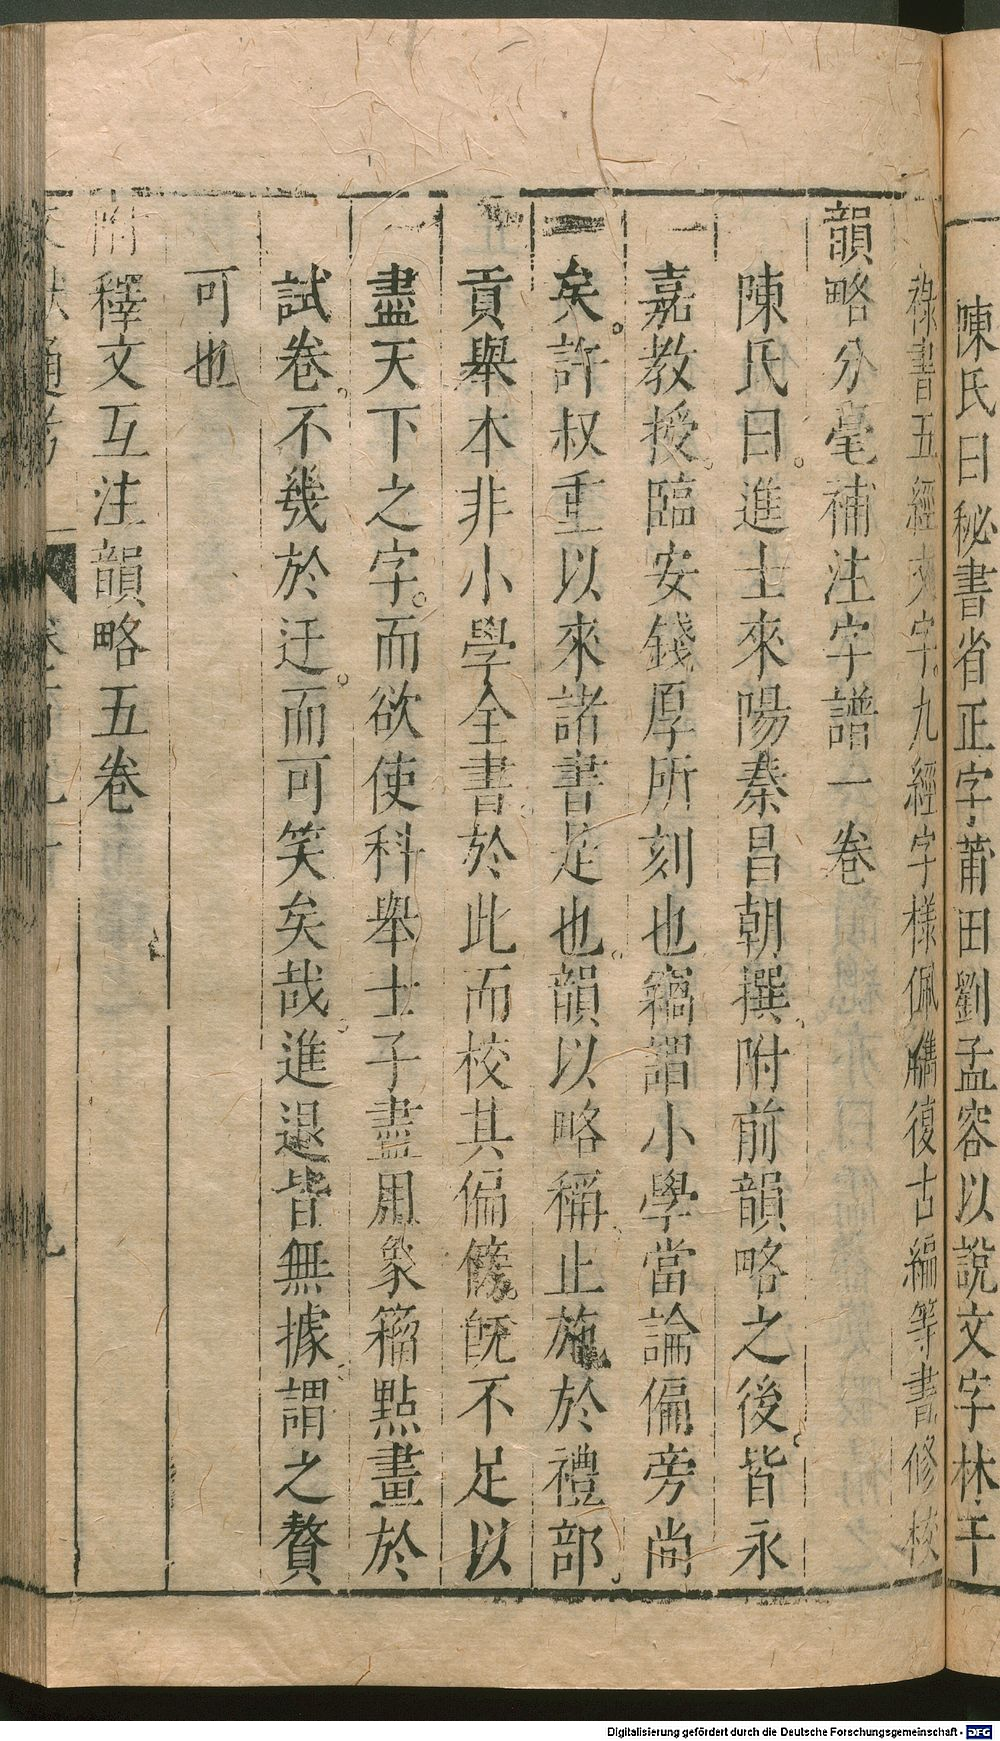 陳氏曰秘書省正字莆田劉孟容以說文字林干
祿書五經文字九經字樣佩觿復古編等書修校
韻略分毫補注字譜一卷
陳氏曰進士來陽秦昌朝撰附前韻略之後皆永
嘉教授臨安錢厚所刻也竊謂小學當論偏旁尚
矣許叔重以來諸書是也韻以略稱止施於禮部
貢舉本非小學全書於此而校其偏傍旣不足以
盡天下之字而欲使科舉士子盡用篆籀點畫於
試卷不幾於迂而可笑矣哉進退皆無據謂之贅
可也
附釋文互注韻略五卷
通考
Digitalisierung gefördert durch die Deutsche Forschungsgemeinschaft - DFG